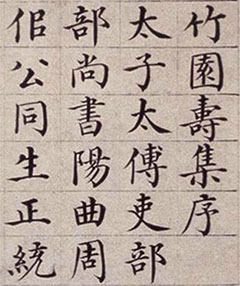 竹園壽集序
太子太傅吏部
部尚書陽曲周
佀公同生正統